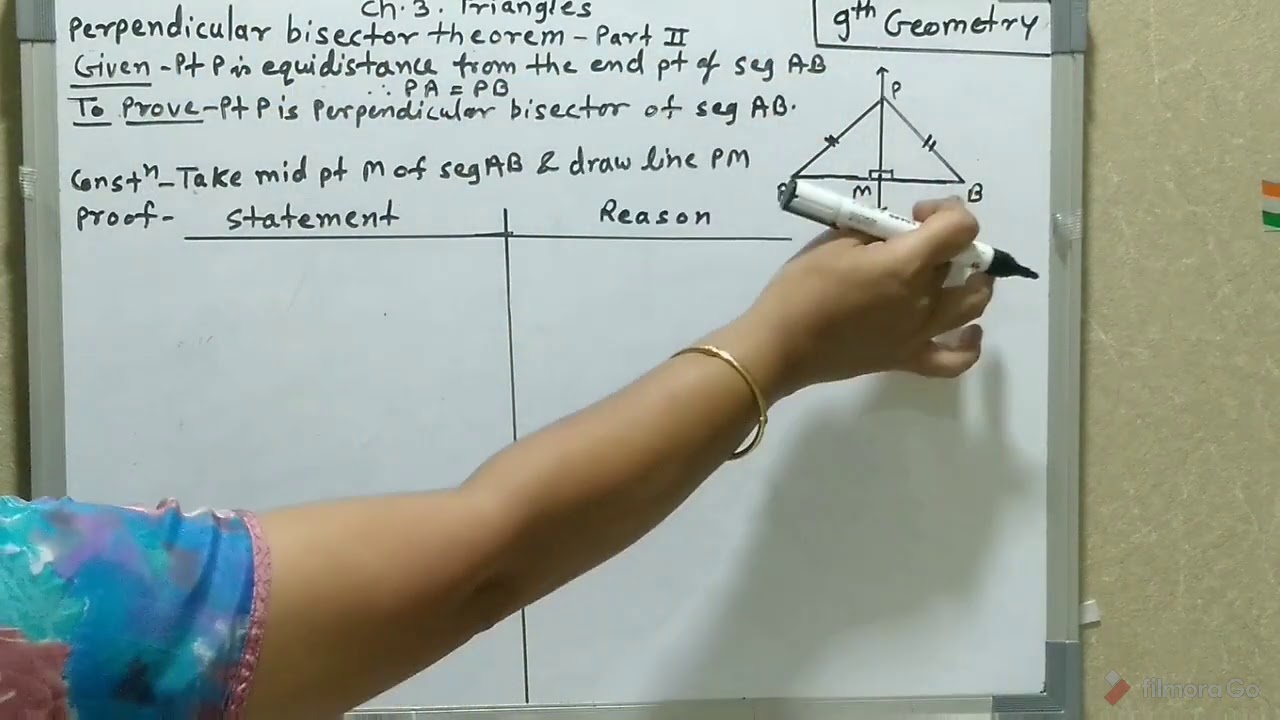 Ch. 3. Triangles
9th Geometry
Perpendicular bisector theorem - Part II
Given - Pt P is equidistance from the end pt of seg AB
∴ PA = PB
To Prove - Pt P is Perpendicular bisector of seg AB.
Constn - Take mid pt M of seg AB & draw line PM
Proof - Statement Reason
P
M
B
filmora Go